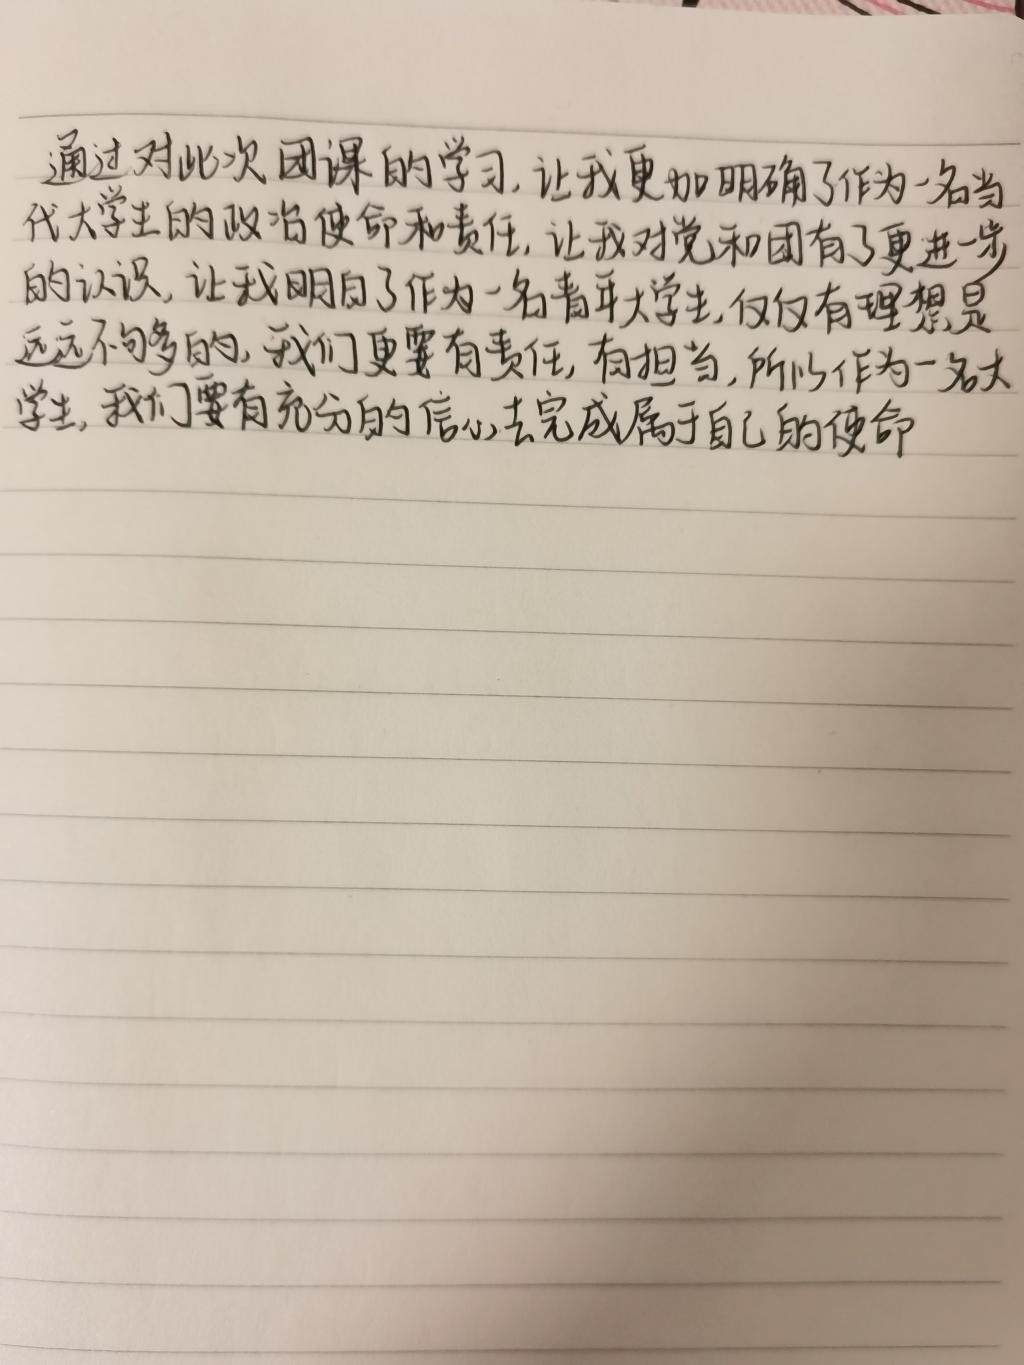 通过对此次团课的学习,让我更加明确了作为一名当
代大学生的政治使命和责任,让我对党和团有了更进一步
的认识,让我明白了作为一名青年大学生,仅仅有理想是
远远不够的,我们更要有责任,有担当,所以作为一名大
学生,我们要有充分的信心去完成属于自己的使命